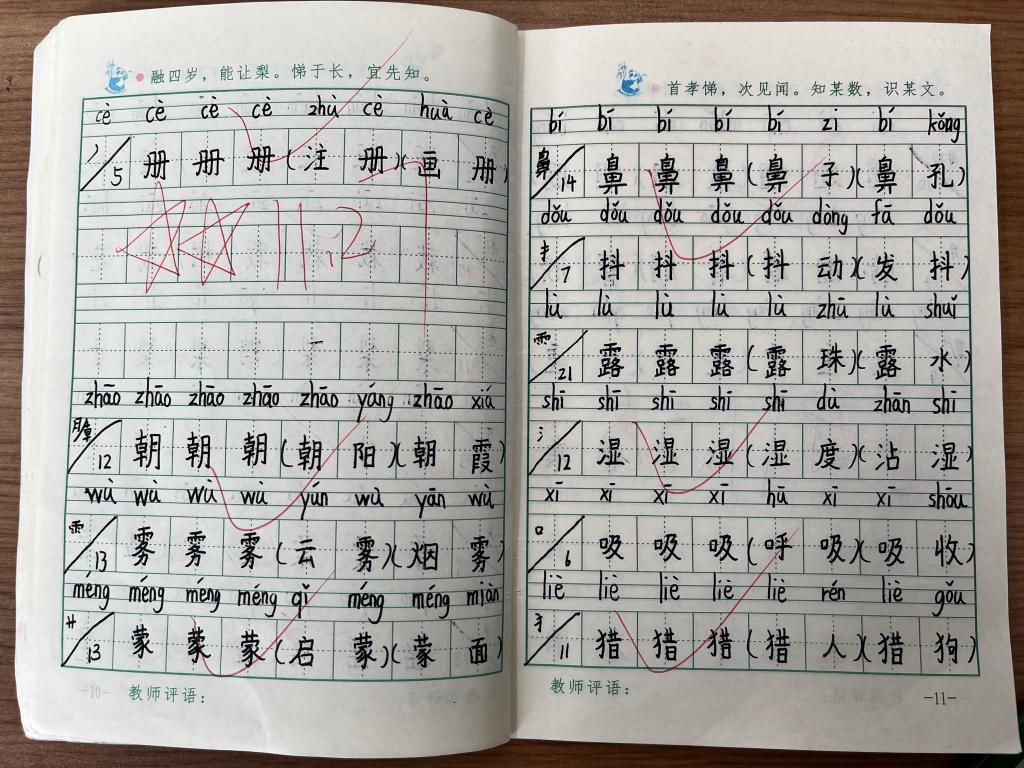 融四岁，能让梨。悌于长，宜先知。
cè cè cè cè zhù cè huà cè
丿 5 册 册 册 (注 册)(画 册)
11.2
zhāo zhāo zhāo zhāo zhāo yáng zhāo xiá
12 朝 朝 朝 (朝 阳)(朝 霞)
wù wù wù wù yún wù yān wù
13 雾 雾 雾 (云 雾)(烟 雾)
méng méng méng méng qǐ méng méng miàn
艹 13 蒙 蒙 蒙 (启 蒙)(蒙 面)
-10- 教师评语：
首孝悌，次见闻。知某数，识某文。
bí bí bí bí bí zi bí kǒng
鼻 14 鼻 鼻 鼻 (鼻 子)(鼻 孔)
dǒu dǒu dǒu dǒu dǒu dòng fā dǒu
扌 7 抖 抖 抖 (抖 动)(发 抖)
lù lù lù lù lù zhū lù shuǐ
21 露 露 露 (露 珠)(露 水)
shī shī shī shī shī dù zhān shī
氵 12 湿 湿 湿 (湿 度)(沾 湿)
xī xī xī xī hū xī xī shōu
口 6 吸 吸 吸 (呼 吸)(吸 收)
liè liè liè liè liè rén liè gǒu
犭 11 猎 猎 猎 (猎 人)(猎 狗)
教师评语： -11-